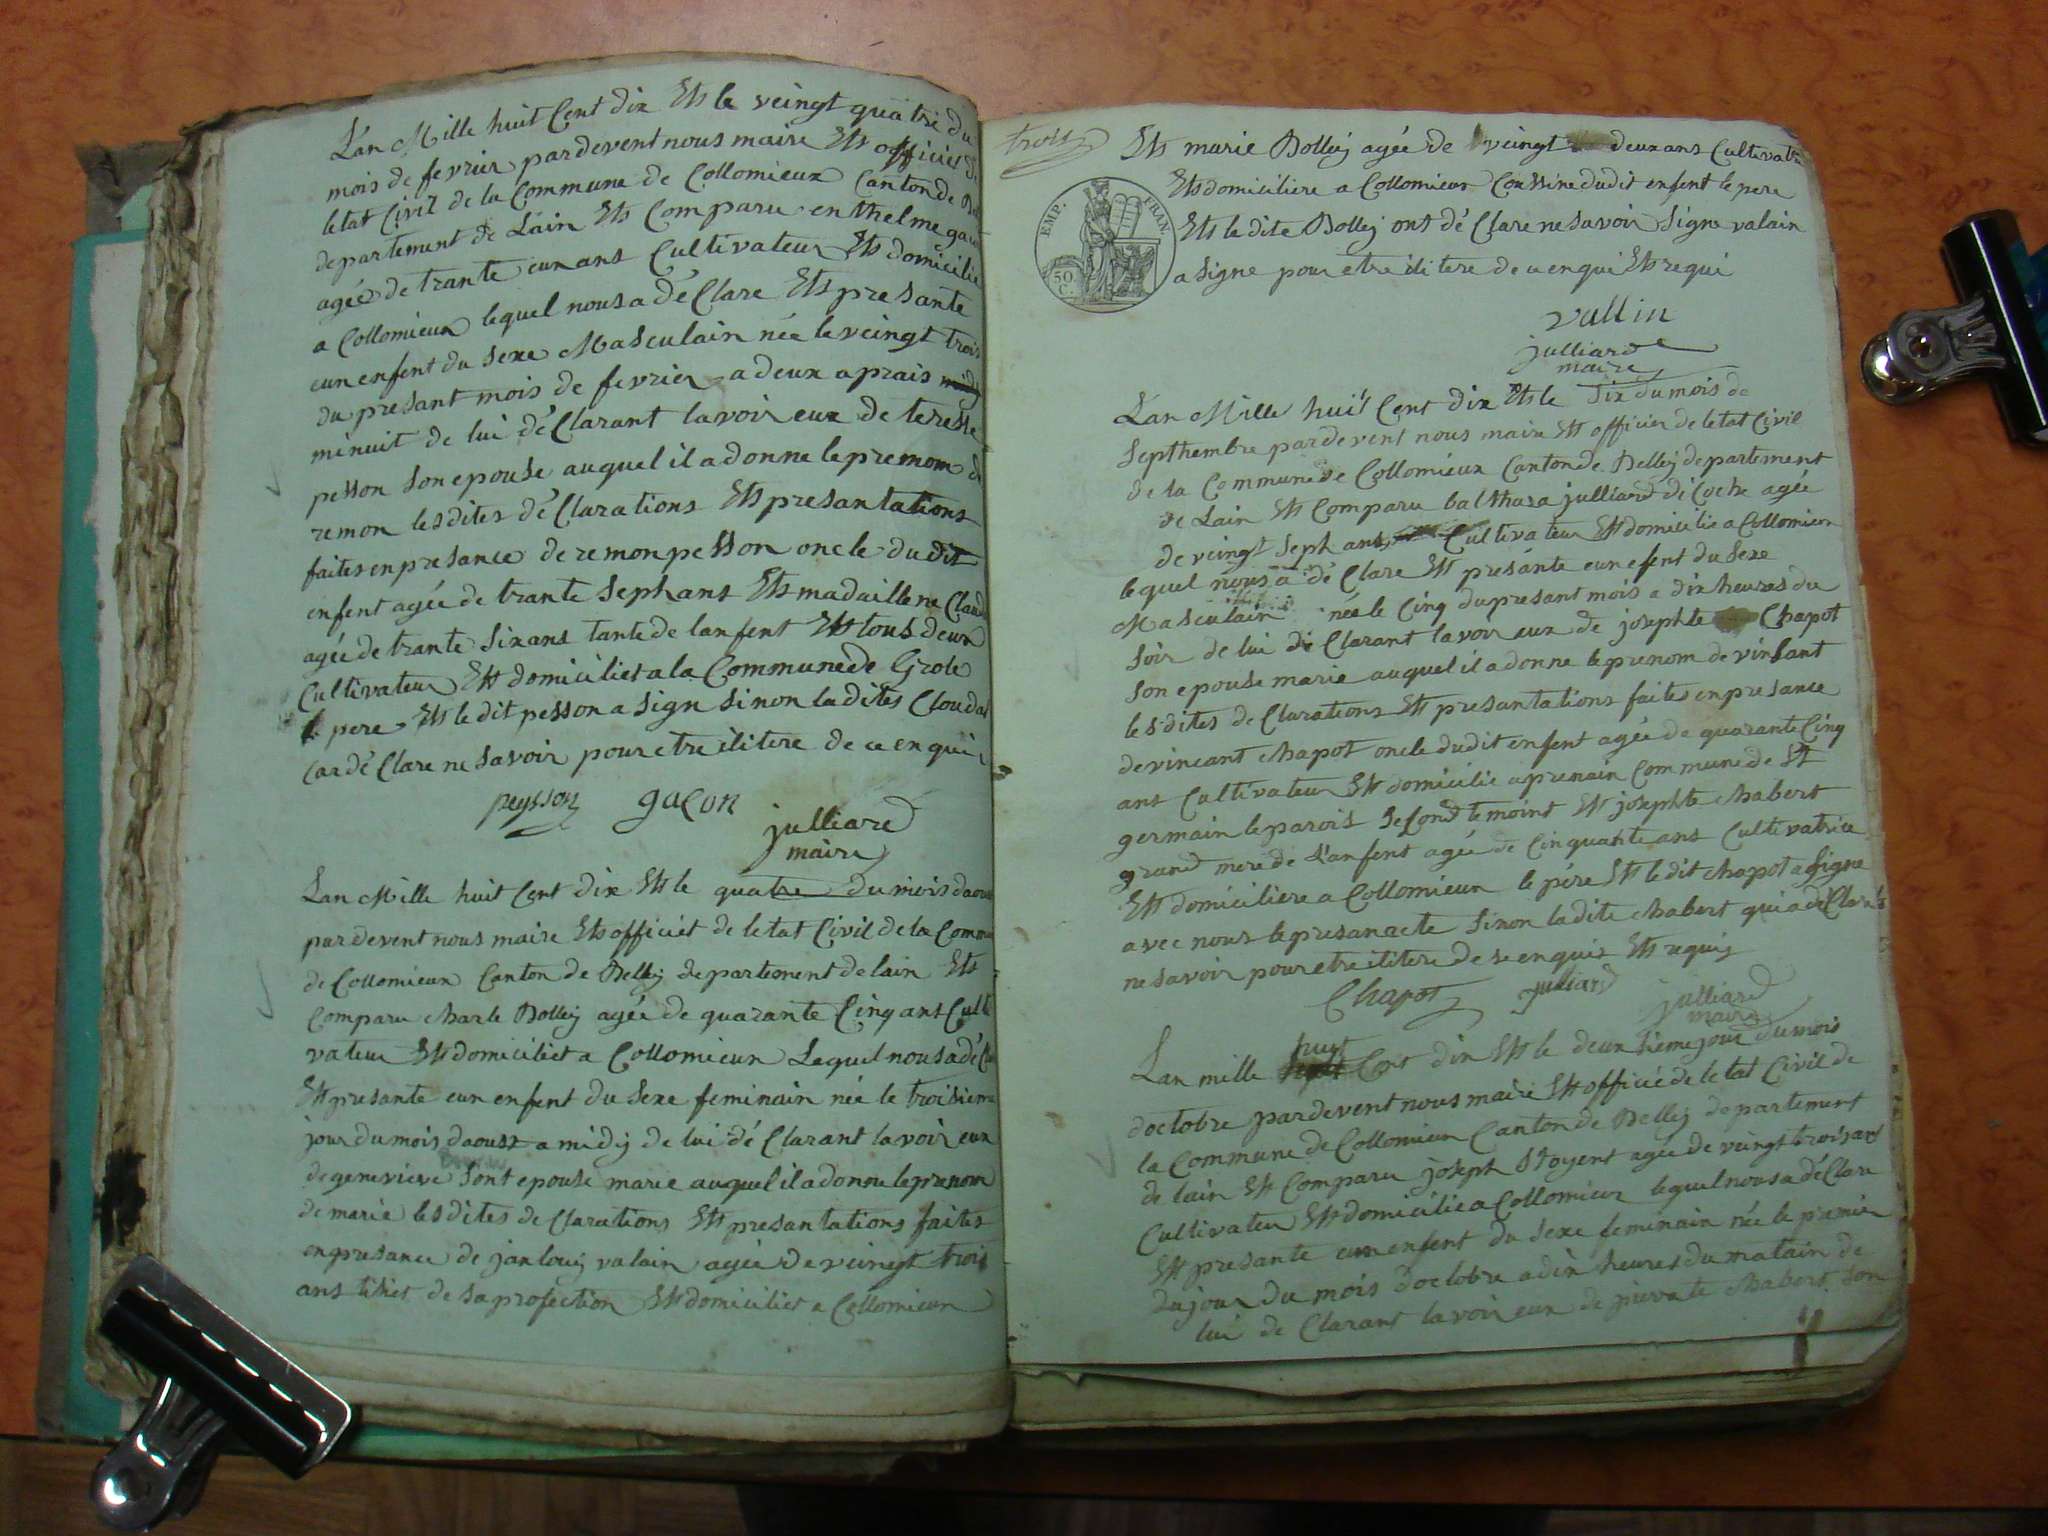 L'an Mille huit Cent dix Ets le veingt quatre du
mois de fevrier par devent nous maire Ets officier de
letat Civil de la Commune de Collomieux Canton de
departement de Lain Ets Comparu enthelme
agée de trante eun ans Cultivateur Ets domicilie
a Collomieux lequel nous a dé Clare Ets presante
eun enfent du sexe Masculain née le veingt trois
du presant mois de fevrier a deux aprais
minuit de lui dé Clarant lavoir eux de teresse
pesson son epouse auquel il a donne le premom de
remon lesdites dé Clarations Ets presantations
faites en presance de remon pesson oncle du dit
enfent agée de trante seph ans Ets madailleine
agée de trante six ans tante de lanfent Ets tous deux
Cultivateur Ets domiciliet a la Commune de Grole
le pere Ets le dit pesson a sign sinon la dites
car dé Clare ne savoir pour etre ilitere de ce en qui
peysson gacon
julliard
maire
Lan Mille huit Cent dix Ets le quatre du mois daoust
par devent nous maire Ets officiet de letat Civil de la Commu
de Collomieux Canton de Belley departement de lain Ets
Comparu charle Bolley agée de quarante Cinq ans Culti
vateur Ets domiciliet a Collomieux Lequel nous a dé Cla
Ets presante eun enfent du sexe feminain née le troisieme
jour du mois daoust a midy de lui dé Clarant lavoir eux
de genevieve sont epouse marie auquel il a donne le prenom
de marie lesdites de Clarations Ets presantations faites
en presance de jan louis valain agée de veingt trois
ans de sa profection Ets domiciliet a Collomieux
trois
Ets marie Bolley agée de veingt deux ans Cultivatr
Ets domiciliere a Collomieux Coussine dudit enfent le pere
Ets la dite Bolley ont dé Clare ne savoir signe valain
a signe pour etre ilitere de ce enqui Ets requi
EMP. FRAN.
50
C.
vallin
julliard
maire
Lan Mille huit Cent dix Ets le six du mois de
Septhembre par devent nous maire Ets officier de letat Civil
de la Commune de Collomieux Canton de Belley departement
de Lain Ets Comparu balthaza julliard di Coche agée
de veingt seph ans Cultivateur Ets domicilie a Collomieux
lequel nous a dé Clare Ets presante eun efent du sexe
Masculain née le Cinq du presant mois a dix heures du
soir de lui de Clarant lavoir eux de josephte Chapot
son epouse marie auquel il a donne le prenom de vinsant
lesdites de Clarations Ets presantations faites en presance
de vincant chapot oncle dudit enfent agée de quarante Cinq
ans Cultivateur Ets domicilie a premain Commune de St
germain le parois second temoint Ets josephte chabert
grand mere de l'anfent agée de Cinquante ans Cultivatrice
Ets domiciliere a Collomieux le pére Ets le dit chapot a signe
avec nous le presan acte sinon la dite chabert qui a de Claré
ne savoir pour etre ilitere de se enquis Ets requis
Chapot julliard julliard
maire
Lan mille huit Cent dix Ets le deuxsieme jour du mois
doctobre par devent nous maire Ets officié de letat Civil de
la Commune de Collomieux Canton de Belley departement
de lain Ets Comparu joseph agée de veingt trois ans
Cultivateur Ets domicilie a Collomieux lequel nous a dé Clare
Ets presante eun enfent du sexe feminain née le premier
du jour du mois doctobre a dix heures du matain de
lui de Clarant lavoir eux de chabert son